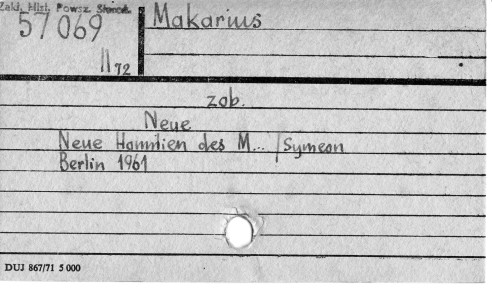 Zakł. Hist. Powsz. Staroż.
57 069
II 72
Makarius
zob.
Neue
Neue Homilien des M... / Symeon
Berlin 1961
DUJ 867/71 5 000